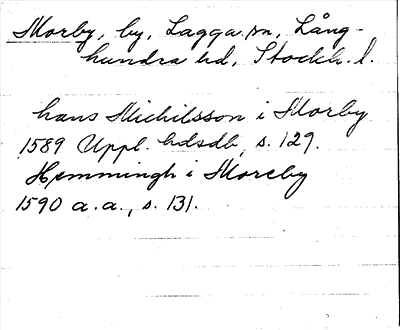 Morby, by, Lagga sn, Lång-
hundra hd, Stockh. l.
hans Michilsson i Morby
1589 Uppl. hdsdb, s. 129.
Hemmingh i Moreby
1590 a.a., s. 131.